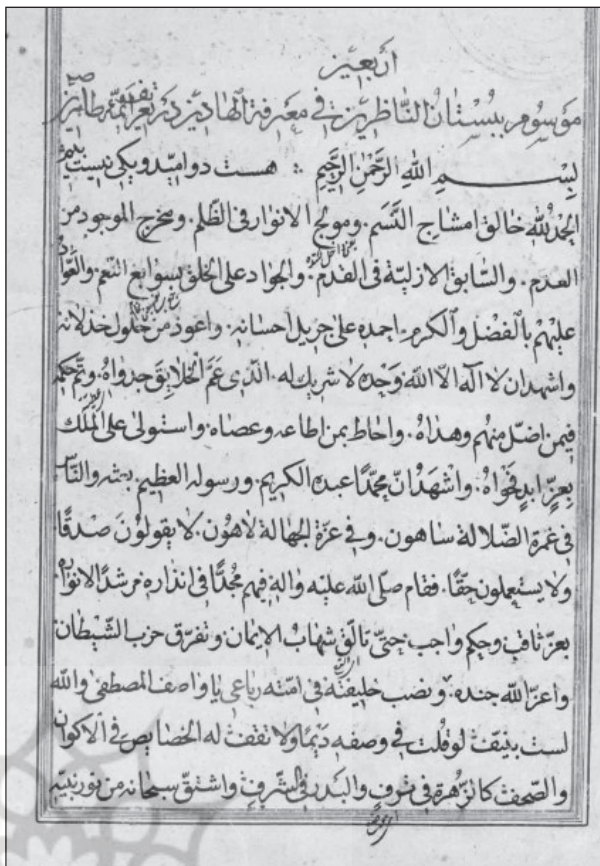 اربعین
موسوم ببستان الناظرین فی معرفة الهادین در تعریف ائمه طاهرین
بسم الله الرحمن الرحیم هست دو امید و یکی نیست بیم
الحمد لله خالق امشاج النسم. ومولج الانوار فی الظلم. ومخرج الموجود من
العدم. والسابق الازلیة فی القدم. والجواد علی الخلق بسوابغ النعم. والعواد
علیهم بالفضل والکرم. احمده علی جزیل احسانه. واعوذ من حلول خذلانه
واشهد ان لا اله الا الله وحده لا شریک له. الذی عم الخلایق جدواه. وتم حکمه
فیمن اضل منهم وهداه. واحاط بمن اطاعه وعصاه. واستولی علی الملک
بعز ابد فحواه. واشهد ان محمدا عبده الکریم. ورسوله العظیم. والناس
فی غمرة الضلالة ساهون. وفی عزة الجهالة لاهون. لا یقولون صدقا
ولا یستعملون حقا. فقام صلی الله علیه واله فیهم مجدا فی انذاره مرشدا لانواره
بعز ثاقب وحکم واجب حتی تالق شهاب الایمان. وتفرق حزب الشیطان
واعز الله جنده. ونصب خلیفته فی امته رباعی یا واصف المصطفی والله
لست بفیت لو قلت فی وصفه دیما ولا نقفت له الخصایص فی الاکوان
والصحف کالزهرة فی ترف والبدر فی الشرف واشتق سبحانه من نور نبیه